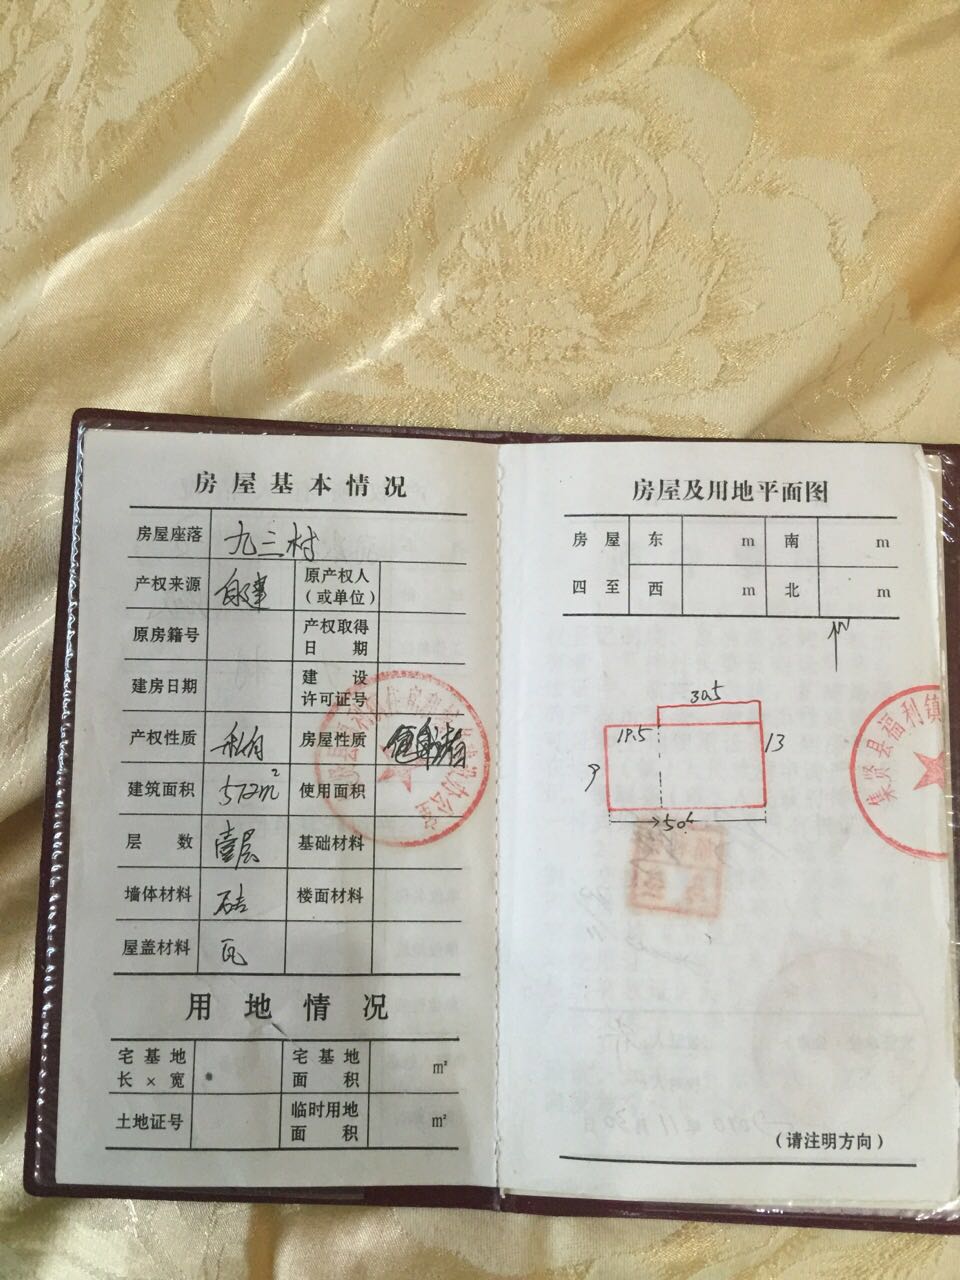 房屋基本情况
房屋座落 九三村
产权来源 自建 原产权人（或单位）
原房籍号 产权取得日期
建房日期 建设许可证号
产权性质 私有 房屋性质
建筑面积 572m² 使用面积
层数 壹层 基础材料
墙体材料 砖 楼面材料
屋盖材料 瓦
用地情况
宅基地长×宽 宅基地面积 m²
土地证号 临时用地面积 m²
房屋及用地平面图
房屋四至 东 m 南 m
西 m 北 m
N
30.5
19.5
13
9
50
集贤县福利镇
（请注明方向）